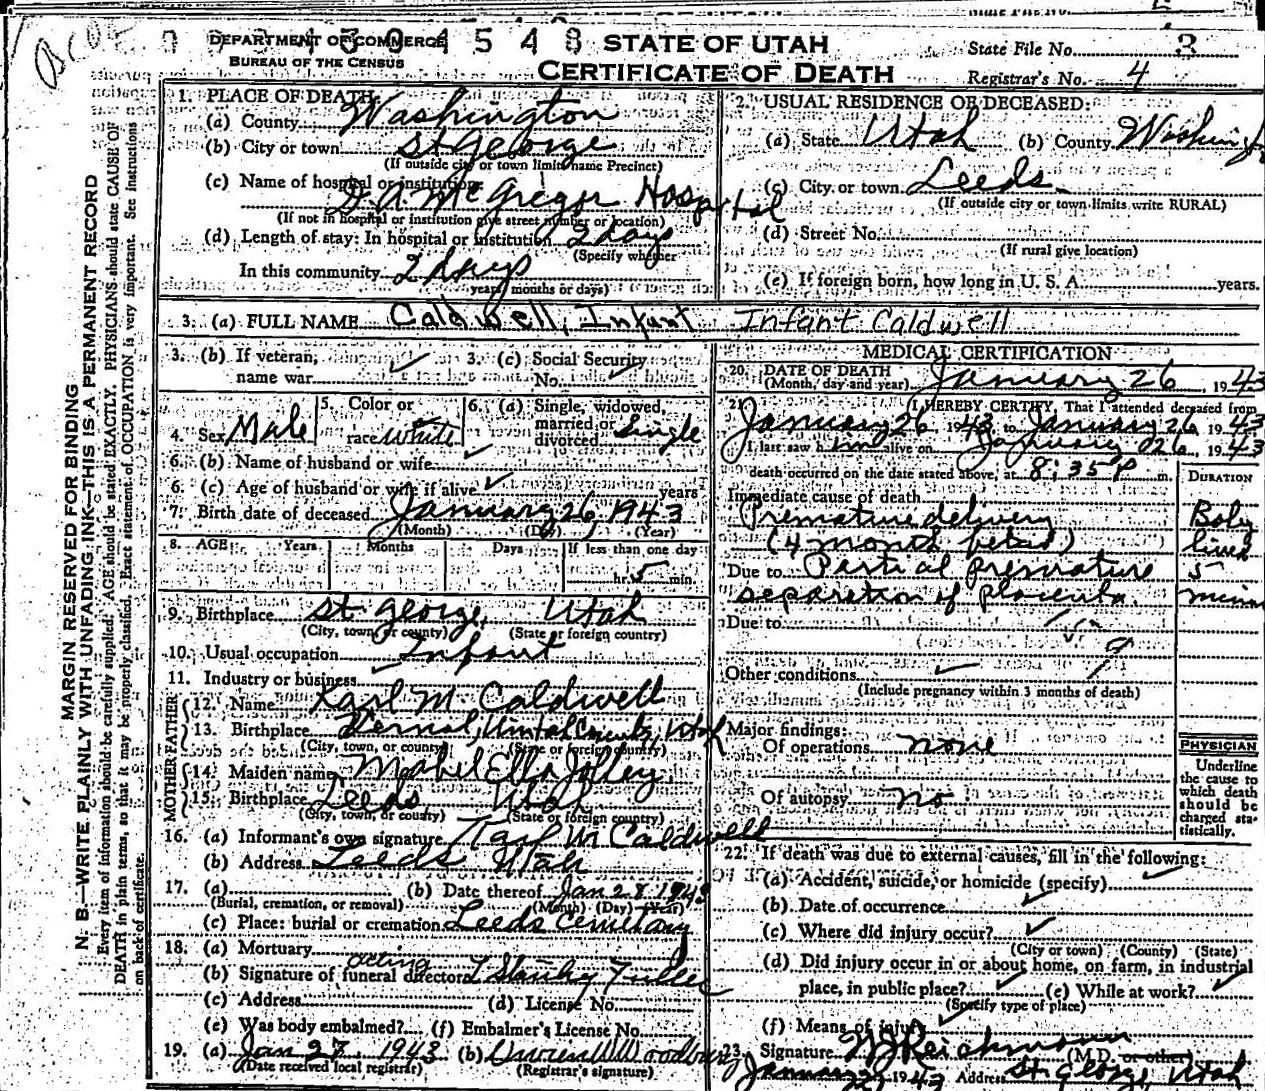 DEPARTMENT OF COMMERCE
BUREAU OF THE CENSUS
STATE OF UTAH
CERTIFICATE OF DEATH
State File No. 3
Registrar's No. 4
MARGIN RESERVED FOR BINDING
N. B.—WRITE PLAINLY WITH UNFADING INK—THIS IS A PERMANENT RECORD
Every item of information should be carefully supplied. AGE should be stated EXACTLY. PHYSICIANS should state CAUSE OF
DEATH in plain terms, so that it may be properly classified. Exact statement of OCCUPATION is very important. See instructions
on back of certificate.
1. PLACE OF DEATH:
(a) County Washington
(b) City or town St George
(If outside city or town limits name Precinct)
(c) Name of hospital or institution:
D. A. McGregor Hospital
(If not in hospital or institution give street number or location)
(d) Length of stay: In hospital or institution 2 days
(Specify whether
In this community 2 days
years, months or days)
2. USUAL RESIDENCE OF DECEASED:
(a) State Utah (b) County Washing
(c) City or town Leeds
(If outside city or town limits write RURAL)
(d) Street No.
(If rural give location)
(e) If foreign born, how long in U. S. A. years.
3. (a) FULL NAME Caldwell, Infant Infant Caldwell
3. (b) If veteran, name war
3. (c) Social Security No.
4. Sex Male
5. Color or race White
6. (a) Single, widowed, married or divorced Single
6. (b) Name of husband or wife
6. (c) Age of husband or wife if alive years
7. Birth date of deceased January 26, 1943
(Month) (Day) (Year)
8. AGE Years Months Days If less than one day
hr. 5 min.
9. Birthplace St George, Utah
(City, town, or county) (State or foreign country)
10. Usual occupation Infant
11. Industry or business
FATHER
12. Name Karl M. Caldwell
13. Birthplace Vernal, Uintah County, Utah
(City, town, or county) (State or foreign country)
MOTHER
14. Maiden name Mabel Ella Jolley
15. Birthplace Leeds, Utah
(City, town, or county) (State or foreign country)
16. (a) Informant's own signature Karl M Caldwell
(b) Address Leeds Utah
17. (a) (b) Date thereof Jan 28 1943
(Burial, cremation, or removal) (Month) (Day) (Year)
(c) Place: burial or cremation Leeds Cemetary
18. (a) Mortuary
acting
(b) Signature of funeral director L Stanley Fuller
(c) Address (d) License No.
(e) Was body embalmed? (f) Embalmer's License No.
19. (a) Jan 28, 1943 (b)
(Date received local registrar) (Registrar's signature)
MEDICAL CERTIFICATION
20. DATE OF DEATH
(Month, day and year) January 26, 1943
21. I HEREBY CERTIFY, That I attended deceased from
January 26 1943, to January 26, 1943
I last saw him alive on January 26, 1943
death occurred on the date stated above, at 8:35 P m.
DURATION
Immediate cause of death
Premature delivery
(4 month fetus)
Due to Partial premature
separation of placenta.
Baby
lived
5
minu
Due to
Other conditions
(Include pregnancy within 3 months of death)
Major findings:
Of operations none
Of autopsy no
PHYSICIAN
Underline
the cause to
which death
should be
charged sta-
tistically.
22. If death was due to external causes, fill in the following:
(a) Accident, suicide, or homicide (specify)
(b) Date of occurrence
(c) Where did injury occur?
(City or town) (County) (State)
(d) Did injury occur in or about home, on farm, in industrial
place, in public place? (e) While at work?
(Specify type of place)
(f) Means of injury
23. Signature W J Reichmann (M.D. or other)
January 1943 Address St George, Utah